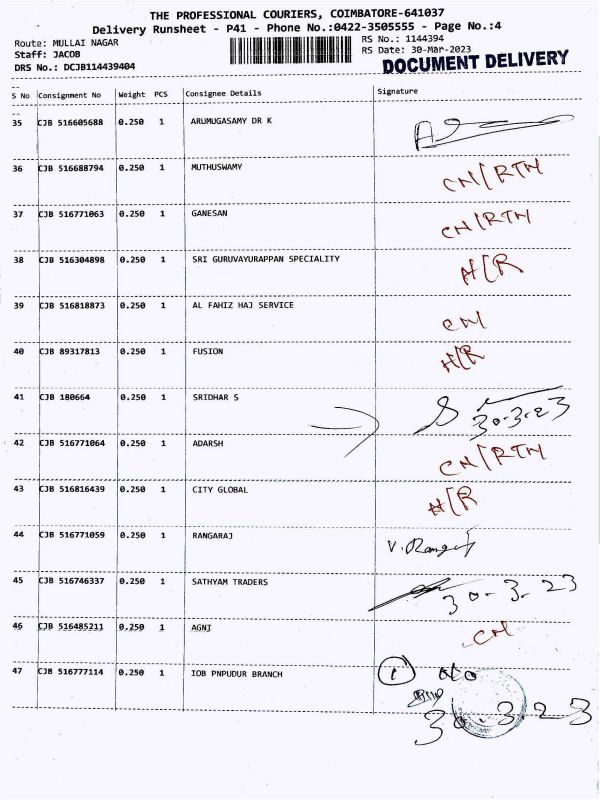 THE PROFESSIONAL COURIERS, COIMBATORE-641037
Delivery Runsheet - P41 - Phone No.:0422-3505555 - Page No.:4
Route: MULLAI NAGAR RS No.: 1144394
Staff: JACOB RS Date: 30-Mar-2023
DRS No.: DCJB114439404 DOCUMENT DELIVERY
S No Consignment No Weight PCS Consignee Details Signature
35 CJB 516605688 0.250 1 ARUMUGASAMY DR K
36 CJB 516688794 0.250 1 MUTHUSWAMY CN/RTN
37 CJB 516771063 0.250 1 GANESAN CN/RTN
38 CJB 516304898 0.250 1 SRI GURUVAYURAPPAN SPECIALITY H/R
39 CJB 516818873 0.250 1 AL FAHIZ HAJ SERVICE CN
40 CJB 89317813 0.250 1 FUSION H/R
41 CJB 180664 0.250 1 SRIDHAR S 30-3-23
42 CJB 516771064 0.250 1 ADARSH CN/RTN
43 CJB 516816439 0.250 1 CITY GLOBAL H/R
44 CJB 516771059 0.250 1 RANGARAJ V. Rangaraj
45 CJB 516746337 0.250 1 SATHYAM TRADERS 30-3-23
46 CJB 516485211 0.250 1 AGNI CN
47 CJB 516777114 0.250 1 IOB PNPUDUR BRANCH 1 No
30.3.23